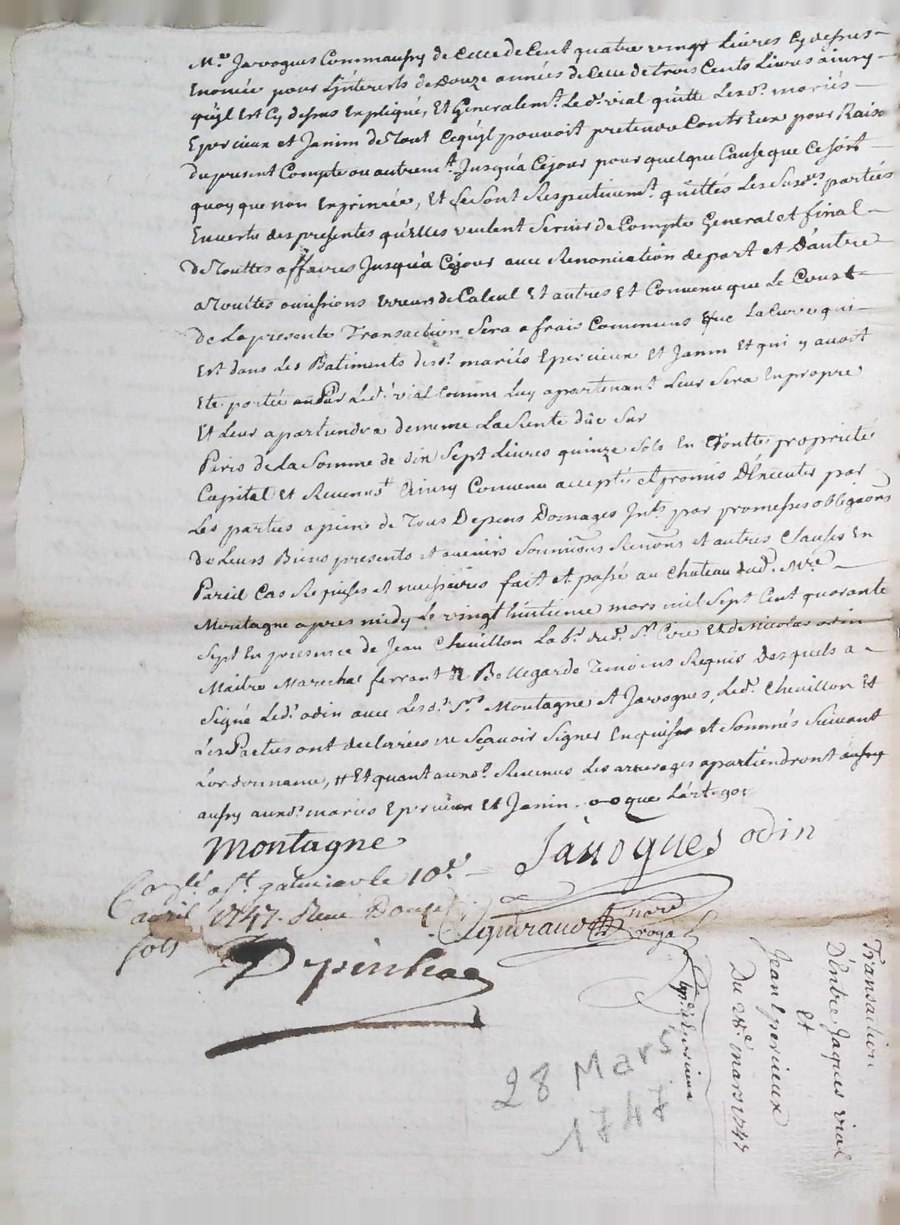 Mre Javogues Comme aussy de Celle de Cent quatre vingt Livres Cy dessus
Enoncée pour L'jnterests de Douze années de Celle de trois Cents Livres ainsy
qu'jl Est Cy dessus Expliqué, Et Generalemt. Led. vial quitte Lesd. mariés
Epercieux et Janin de tout Cequ'jl pouvoit pretendre Contr'Eux pour Raison
du present Compte ou autremt. Jusqu'a Cejour pour quelque Cause que Ce soit
quoy que non Exprimée, Et se sont Respectivemt. quittés Les Susds. parties
En vertu des presentes qu'Elles veulent Servir de Compte General et final
de touttes affaires Jusqu'a Cejour avec Renonciation de part et D'autre
a touttes omissions Erreurs de Calcul Et autres Et Convenu que Le Coust
de La presente Transaction Sera a frais Communs Et que La Cuve qui
Est dans Les Batiments desd. mariés Epercieux Et Janin Et qui y avoit
Eté portée par Led. vial Comme Luy apartenant Leur Sera En propre
Et Leur apartiendra de meme La Rente düe Sur
Peris de La Somme de dix Sept Livres quinze Sols En toutte propriété
Capital et Revenust. Ainsy Convenu accepté et promis D'Executer par
Les parties a peine de Tous Depens Domages Jnts. par promesses obligaons
de Leurs Biens presents et avenirs Soumissions Renons. et autres Clauses En
Pareil Cas Requises et necessaires fait et passé au Chateau dud. Mre
Montagne apres midy Le vingt huitieme mars mil Sept Cent quarante
Sept En presence de Jean Chevillon Labr. dud. St. Cire Et de Nicolas odin
Maitre Marechal ferrant de Bellegarde Temoins Requis Desquels a
Signé Led. odin avec Lesd. Srs. Montagne et Javogues, Led. Chevillon Et
Les Parties ont declarées ne Sçavoir Signer Enquises et Sommés Suivant
L'ordonnance, # Et quant auxd. Revenus Les arrerages apartiendront aussy
aussy auxd. maries Epercieux Et Janin.
Montagne Javogues odin
Conlé a St. galmier le 10e
avril 1747. Reçu Douze
sols guiraud nore royal
Depinhac
Transaction
D'Entre Jaques vial
Et
Jean Epercieux
Du 28e. mars 1747
28 Mars
1747